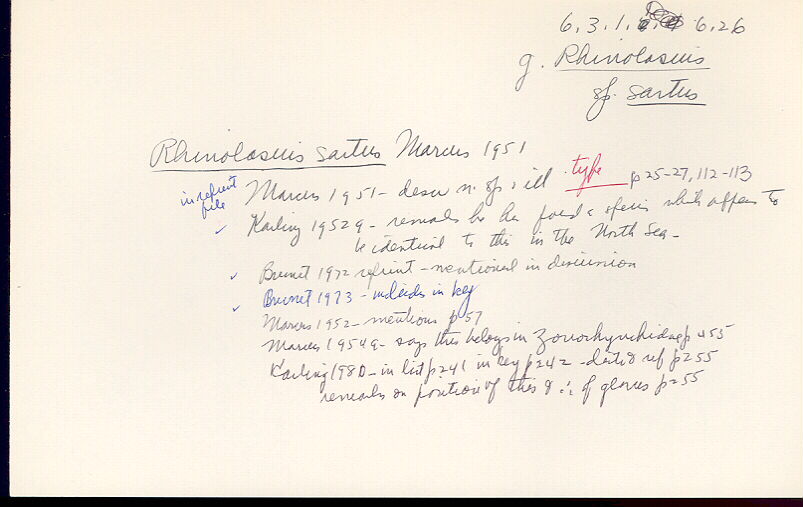 6.3.1. 6.26
g. Rhinolasius
sp. sartus
Rhinolasius sartus Marcus 1951
in reprint file
Marcus 1951 - descr n. sp; ill. type p 25-27, 112-113
✓ Karling 1952a - remarks he has found a species which appears to
be identical to this in the North Sea -
✓ Brunet 1972 reprint - mentioned in discussion
✓ Brunet 1973 - includes in key
Marcus 1952 - mentions p 57
Marcus 1954a - says this belongs in Zonorhynchidae p 455
Karling 1980 - in list p 241 in key p 242 - dist & ref p 255
remarks on position of this & of genus p 255